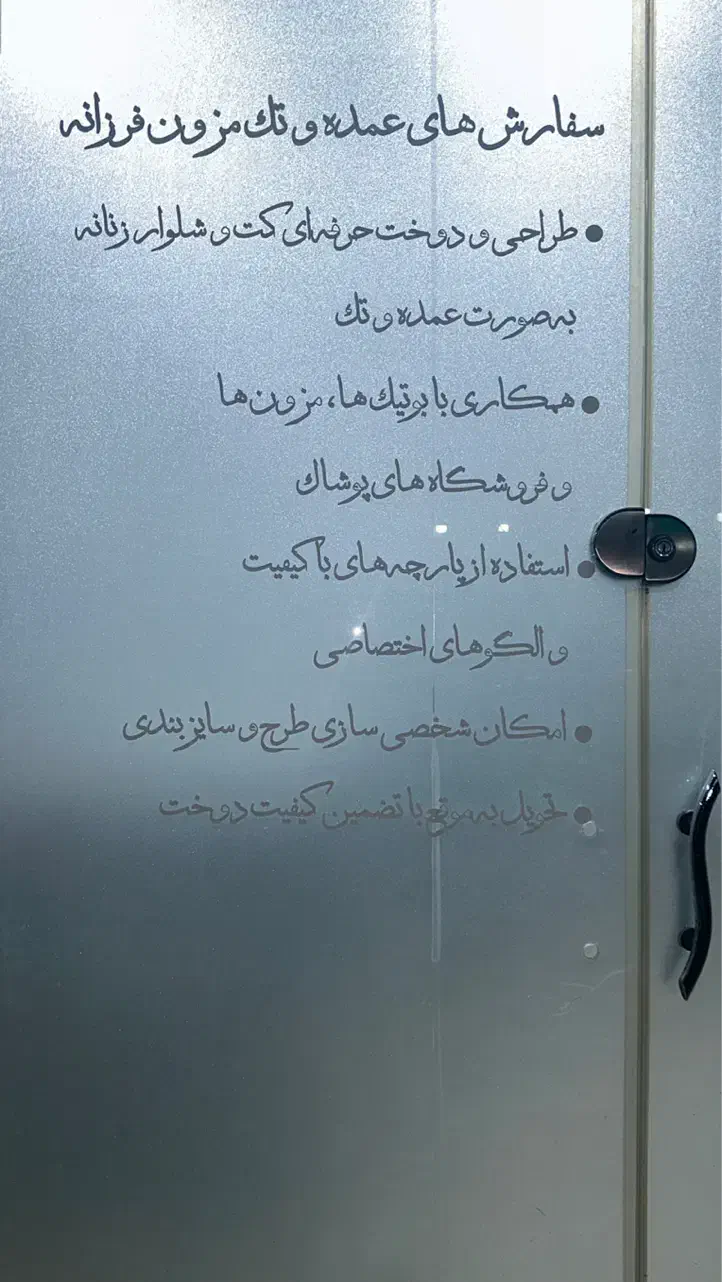 سفارش های عمده و تک مزون فرزانه
● طراحی و دوخت حرفه‌ای کت و شلوار زنانه
به صورت عمده و تک
● همکاری با بوتیک ها، مزون ها
و فروشگاه های پوشاک
● استفاده از پارچه‌های با کیفیت
و الگوهای اختصاصی
● امکان شخصی سازی طرح و سایز بندی
● تحویل به موقع با تضمین کیفیت دوخت